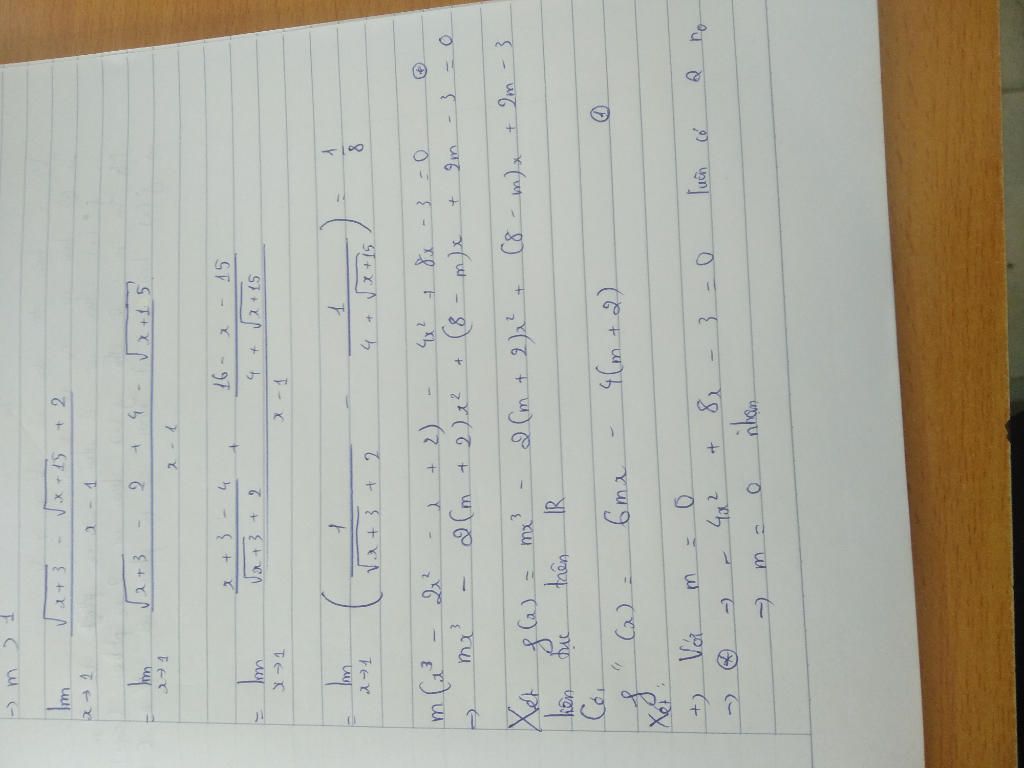 → m > 1
lim x→1 (√(x+3) - √(x+15) + 2)/(x - 1)
= lim x→1 (√(x+3) - 2 + 4 - √(x+15))/(x - 1)
= lim x→1 ((x + 3 - 4)/(√(x+3) + 2) + (16 - x - 15)/(4 + √(x+15)))/(x - 1)
= lim x→1 (1/(√(x+3) + 2) - 1/(4 + √(x+15))) = 1/8
m(x³ - 2x² - x + 2) - 4x² + 8x - 3 = 0 (*)
→ mx³ - 2(m + 2)x² + (8 - m)x + 2m - 3 = 0
Xét f(x) = mx³ - 2(m + 2)x² + (8 - m)x + 2m - 3
liên tục trên ℝ
Có,
f''(x) = 6mx - 4(m + 2) (1)
Xét:
+) Với m = 0
→ (*) → - 4x² + 8x - 3 = 0 luôn có 2 n₀
→ m = 0 nhận